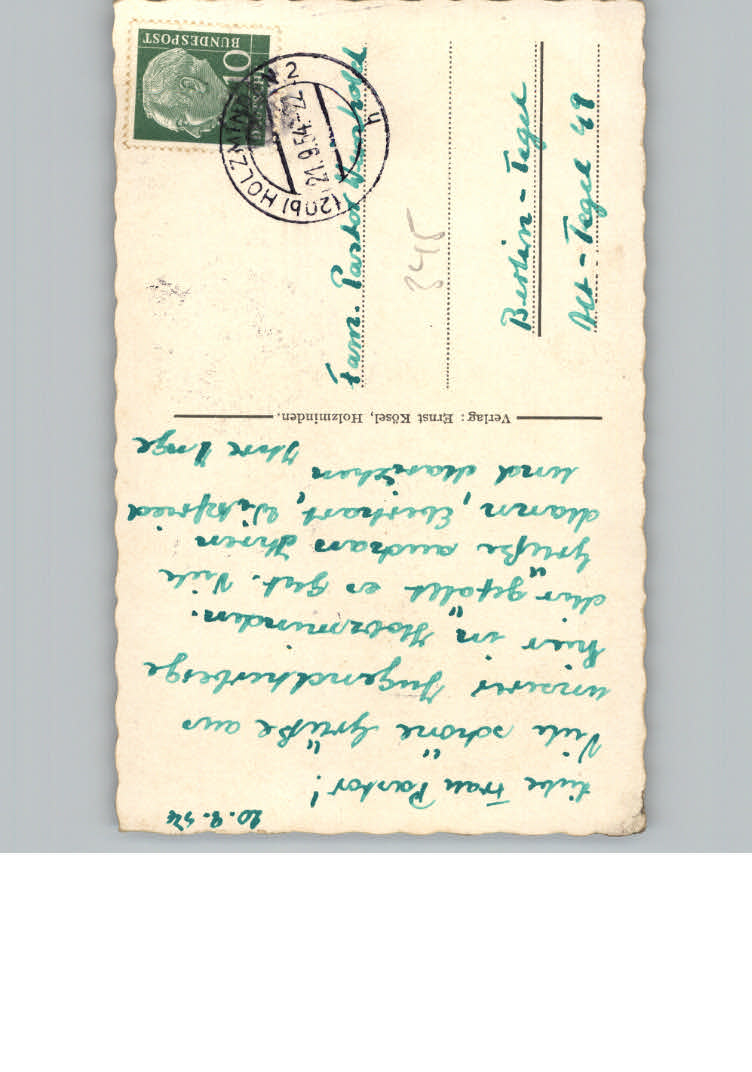 20.9.54
Liebe Frau Pastor!
Viele schöne Grüße aus
unserer Jugendherberge
hier in Holzminden.
Mir gefällt es gut. Viele
Grüße an Ihren
Mann, Eberhart,
und
Ihre Inge
Verlag: Ernst Kösel, Holzminden.
BUNDESPOST
10
(20b) HOLZMINDEN 2
21.9.54-22
h
Fam. Pastor
345
Berlin-Tegel
Alt-Tegel 48